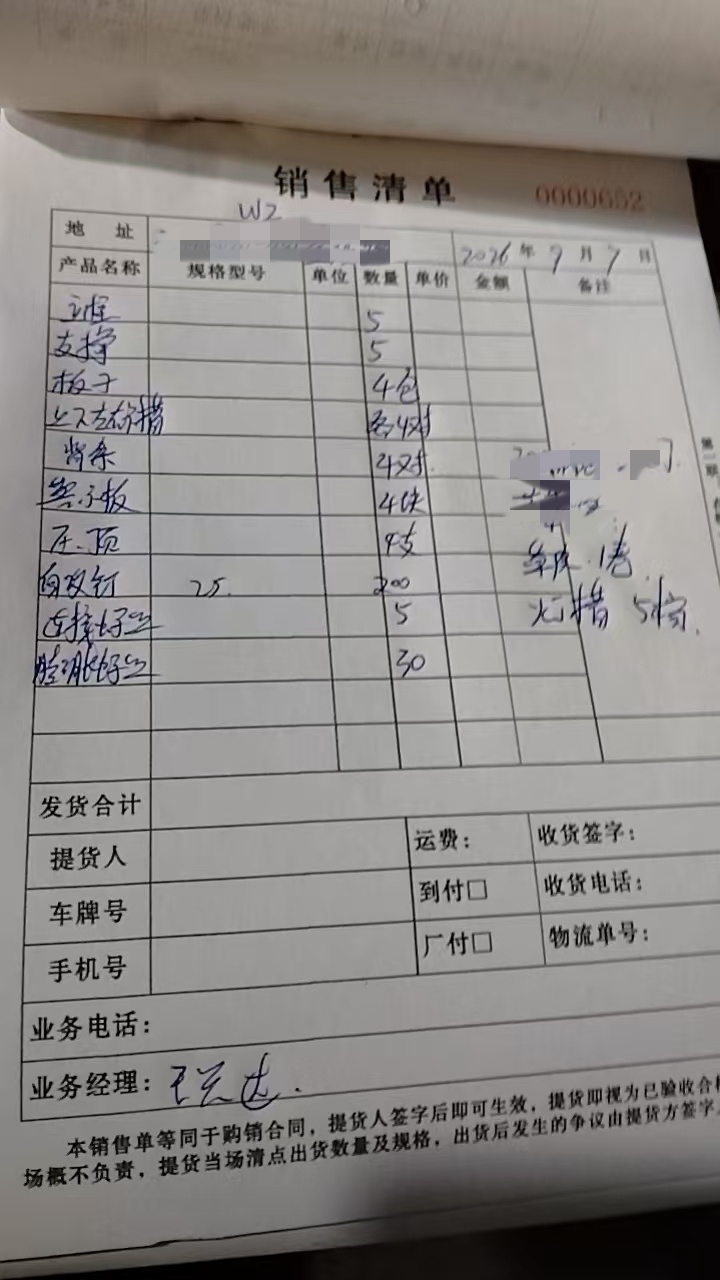 销售清单 0000652
W2
地 址 2026年9月7日
产品名称 规格型号 单位 数量 单价 金额 备注
5
支撑 5
板子 4包
上下左右 各4对
背条 4对
板 4块
压顶 4支
自攻钉 25. 200 1套
连接 5 5
膨胀 30
发货合计
提货人 运费: 收货签字:
车牌号 到付□ 收货电话:
手机号 厂付□ 物流单号:
业务电话:
业务经理: 王
本销售单等同于购销合同，提货人签字后即可生效，提货即视为已验收合
场概不负责，提货当场清点出货数量及规格，出货后发生的争议由提货方签字
第二联